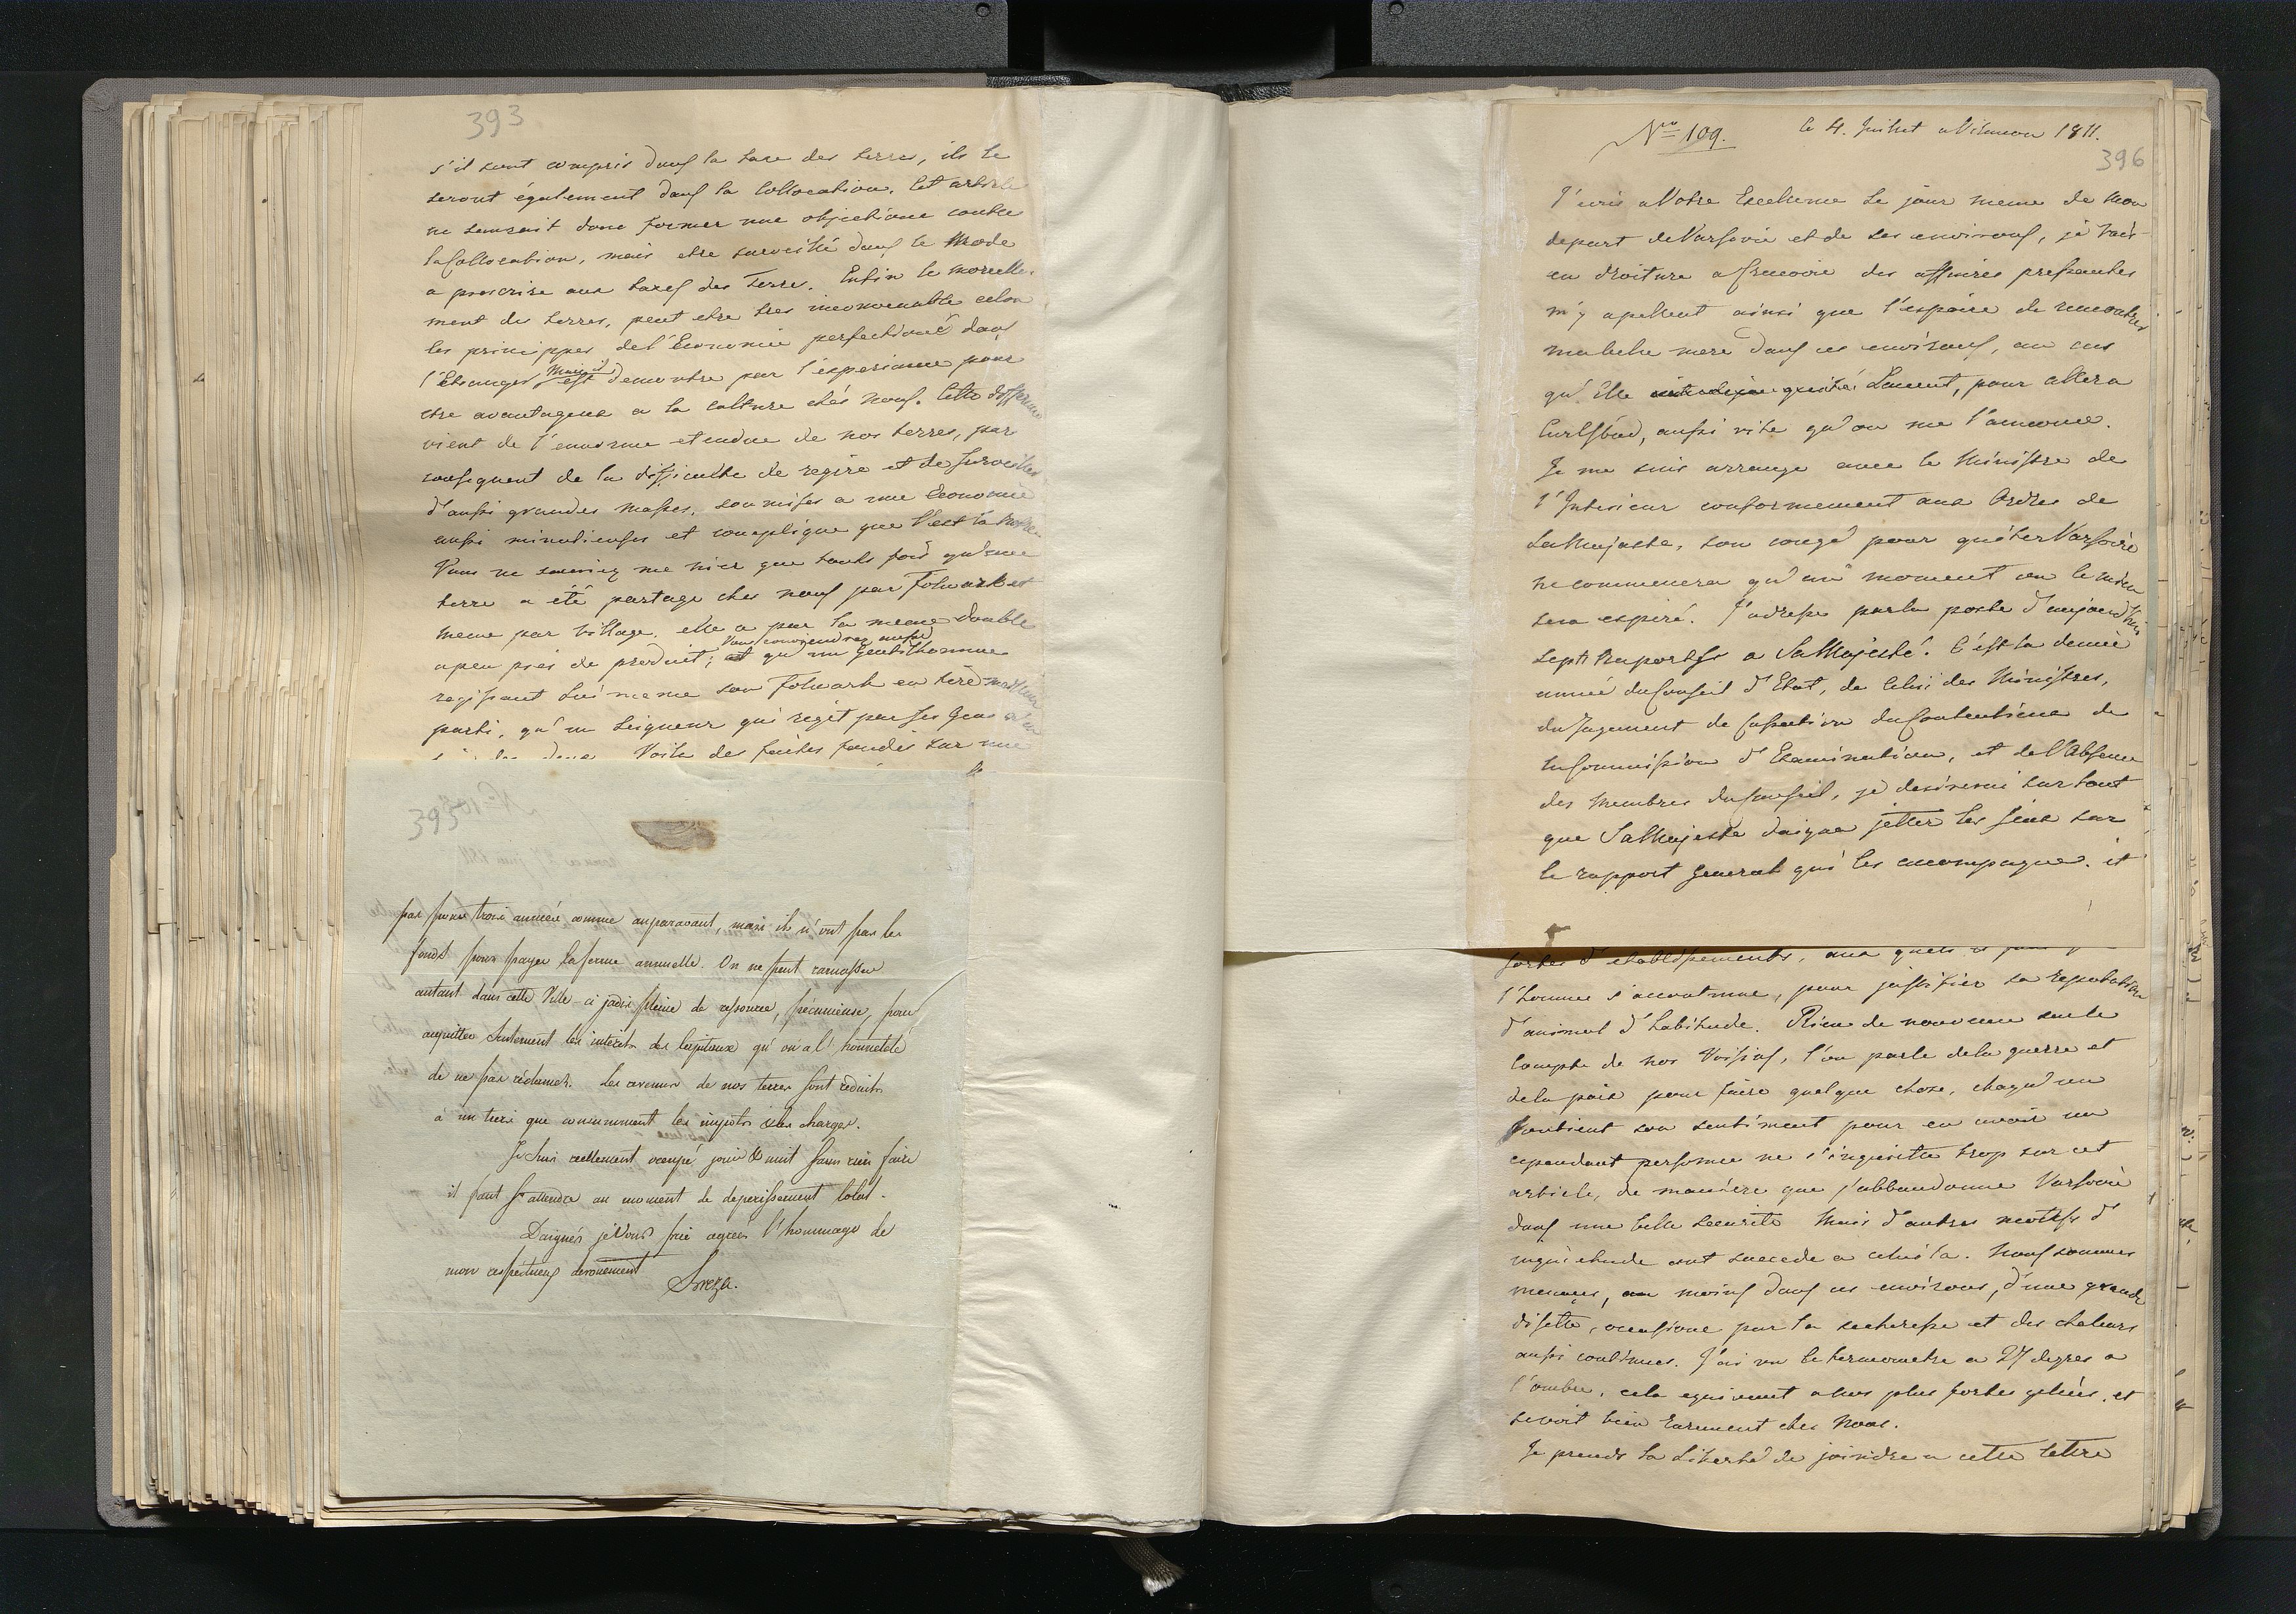 393
s'il sont compris dans la taxe des terres, ils le
seront également dans la Collocation. Cet article
ne sauroit donc former une objectione contre
la Collocation, mais etre surveillé dans le Mode
a prescrire aux taxes des Terre. Enfin le morcelle-
ment des terres, peut etre tres inconvenable selon
les principes de l'Economie perfectioné dans
l'étranger, Mais il est demontre par l'experience pour
etre avantageux a la culture chés nous. Cette differenc
vient de l'enorme etendue de nos terres, par
consequent de la difficulte de regire et de surveiller
d'aussi grandes masses, soumises a une Economie
aussi minutieuses et complique que l'est la notre
Vous ne sauriez me nier que touts fois qu'une
terre a été partage ches nous par Folwark et
meme par village, elle a par la meme double
a peu près de produit; Vous conviendrez aussi qu'un Gentilhomme
regissant lui meme son Folwark en tire meilleur
parti, qu'un Seigneur qui regit par ses Gens
Voila des faites fondés sur une
393
pas pour trois année comme auparavant, mais ils n'ont pas les
fonds pour payer la ferme annuelle. On ne peut ramasser
autant dans cette Ville-ci jadis pleine de ressource, pécunieuse, pour
acquitter seulement les intérêts des Capitaux qu'on a l'honnetété
de ne pas réclamer. Les revenus de nos terres sont réduits
à un tiers que consumment les impôts & les charges.
Je suis réellement occupé jour & nuit sans rien faire
il faut s'attendre au moment de deperissement total.
Daignés je Vous prie agréer l'hommage de
mon respectueux devouement
Breza.
Nro 109. le 4. Juillet a Vilanow 1811.
396
J'ecris a Votre Excellence le jour meme de mon
depart de Varsovie et de ses environs, je vais
en droiture a Cracovie des affaires pressantes
m'y apellent ainsi que l'espoire de rencontrer
ma belle mere dans ces environs, au cas
qu'Elle quitté Lancut, pour aller a
Carlsbad, aussi vite qu'on me l'annonce.
Je me suis arrange avec le Ministre de
l'Interieur conformement aux Ordres de
Sa Majeste, son congé pour quiter Varsovie
ne commencera qu'au moment ou le mien
sera expiré. J'adresse par la poste d'aujourd'hui
sept Raports a Sa Majesté. C'est la
année du Conseil d'Etat, de Celui des Ministres,
du Jugement de Cassation du Contentieux de
la Commission d'Examination, et de l'Absence
des Membres du Conseil, je desirerai sur tout
que Sa Majeste daigne jetter les yeux sur
le rapport General qui les accompagne. et
sortes d'etablissements, aux quels
l'homme s'accoutume, pour justifier sa reputation
d'animal d'habitude. Rien de nouveau sur le
Compte de nos Voisins, l'on parle de la guerre et
de la paix pour faire quelque chose, chaqu'un
soutient son sentiment pour en avoir un
cependant personne ne s'inquiette trop sur cet
article, de maniere que j'abbandonne Varsovie
dans une belle securite Mais d'autres motifs d'
inquietude ont succede a celui la. Nous sommes
menaçes, au moins dans ces environs, d'une grande
disette, occasione par la secheresse et des chaleurs
aussi continues. J'ai vu le termometre a 27 degres a
l'ombre, cela equivaut a nos plus fortes gelées, et
se voit bien rarement ches Nous.
Je prends la liberté de joindre a cette lettre